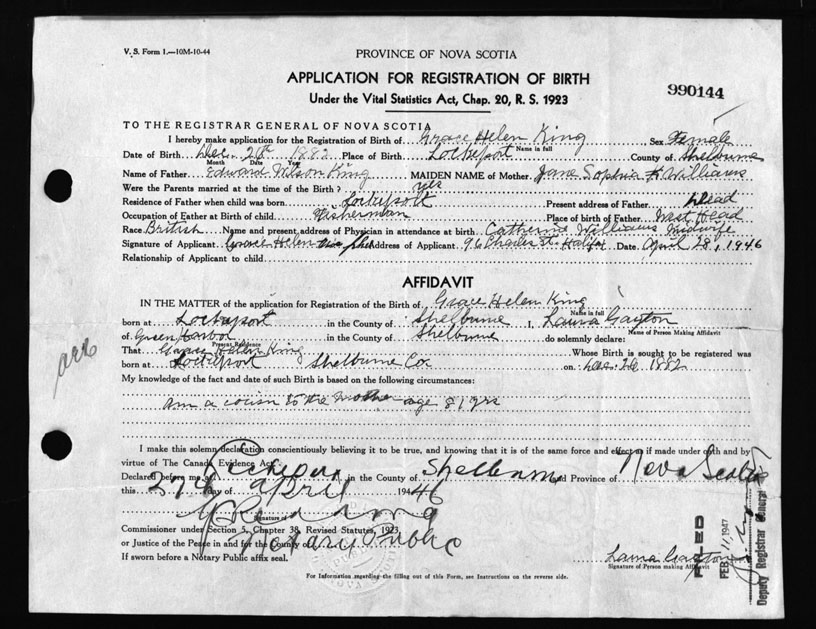 V. S. Form 1.—10M-10-44
PROVINCE OF NOVA SCOTIA
APPLICATION FOR REGISTRATION OF BIRTH
990144
Under the Vital Statistics Act, Chap. 20, R. S. 1923
TO THE REGISTRAR GENERAL OF NOVA SCOTIA
I hereby make application for the Registration of Birth of Grace Helen King Sex Female
Name in full
Date of Birth Dec. 26th 1882 Place of Birth Lockeport County of Shelburne
Month Date Year
Name of Father Edward Nelson King MAIDEN NAME of Mother Jane Sophia Williams
Were the Parents married at the time of Birth? yes
Residence of Father when child was born Lockeport Present address of Father Dead
Occupation of Father at Birth of child Fisherman Place of birth of Father West Head
Race British Name and present address of Physician in attendance at birth Catherine Williams Midwife
Signature of Applicant Grace Helen Address of Applicant 96 Charles St. Halifax Date April 28, 1946
Relationship of Applicant to child
AFFIDAVIT
IN THE MATTER of the application for Registration of the Birth of Grace Helen King
Name in full
born at Lockeport in the County of Shelburne I, Laura Gayton
Name of Person Making Affidavit
of Green Harbor in the County of Shelburne do solemnly declare:
Present Residence
That Grace Helen King Whose Birth is sought to be registered was
born at Lockeport Shelburne Co. on Dec. 26 1882
My knowledge of the fact and date of such Birth is based on the following circumstances:
am a cousin to the mother age 81 yrs
I make this solemn declaration conscientiously believing it to be true, and knowing that it is of the same force and effect as if made under oath and by
virtue of The Canada Evidence Act.
Declared before me at in the County of Shelburne and Province of Nova Scotia
this day of April 1946
Signature of
Commissioner under Section 5, Chapter 38, Revised Statutes, 1923
or Justice of the Peace in and for the County of Notary Public
If sworn before a Notary Public affix seal.
Laura Gayton
Signature of Person making Affidavit
For Information regarding the filling out of this Form, see Instructions on the reverse side.
FILED
FEB 11, 1947
Deputy Registrar General